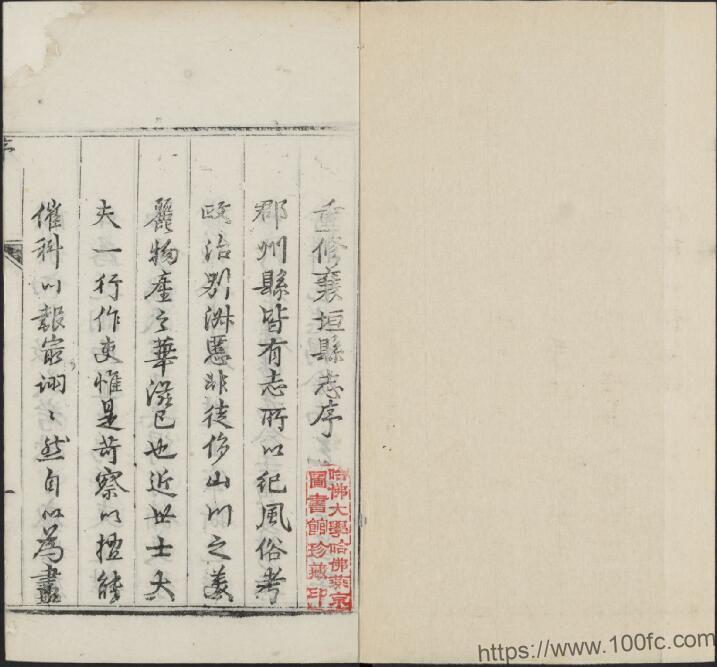 重修襄垣縣志序
郡州縣皆有志所以紀風俗考
政治別淑慝非徒侈山川之美
麗物産之華滋已也近世士大
夫一行作吏惟是苛察以擅能
催科以報最詡〻然自以為盡
哈佛大學哈佛燕京
圖書館珍藏印
https://www.100fc.com